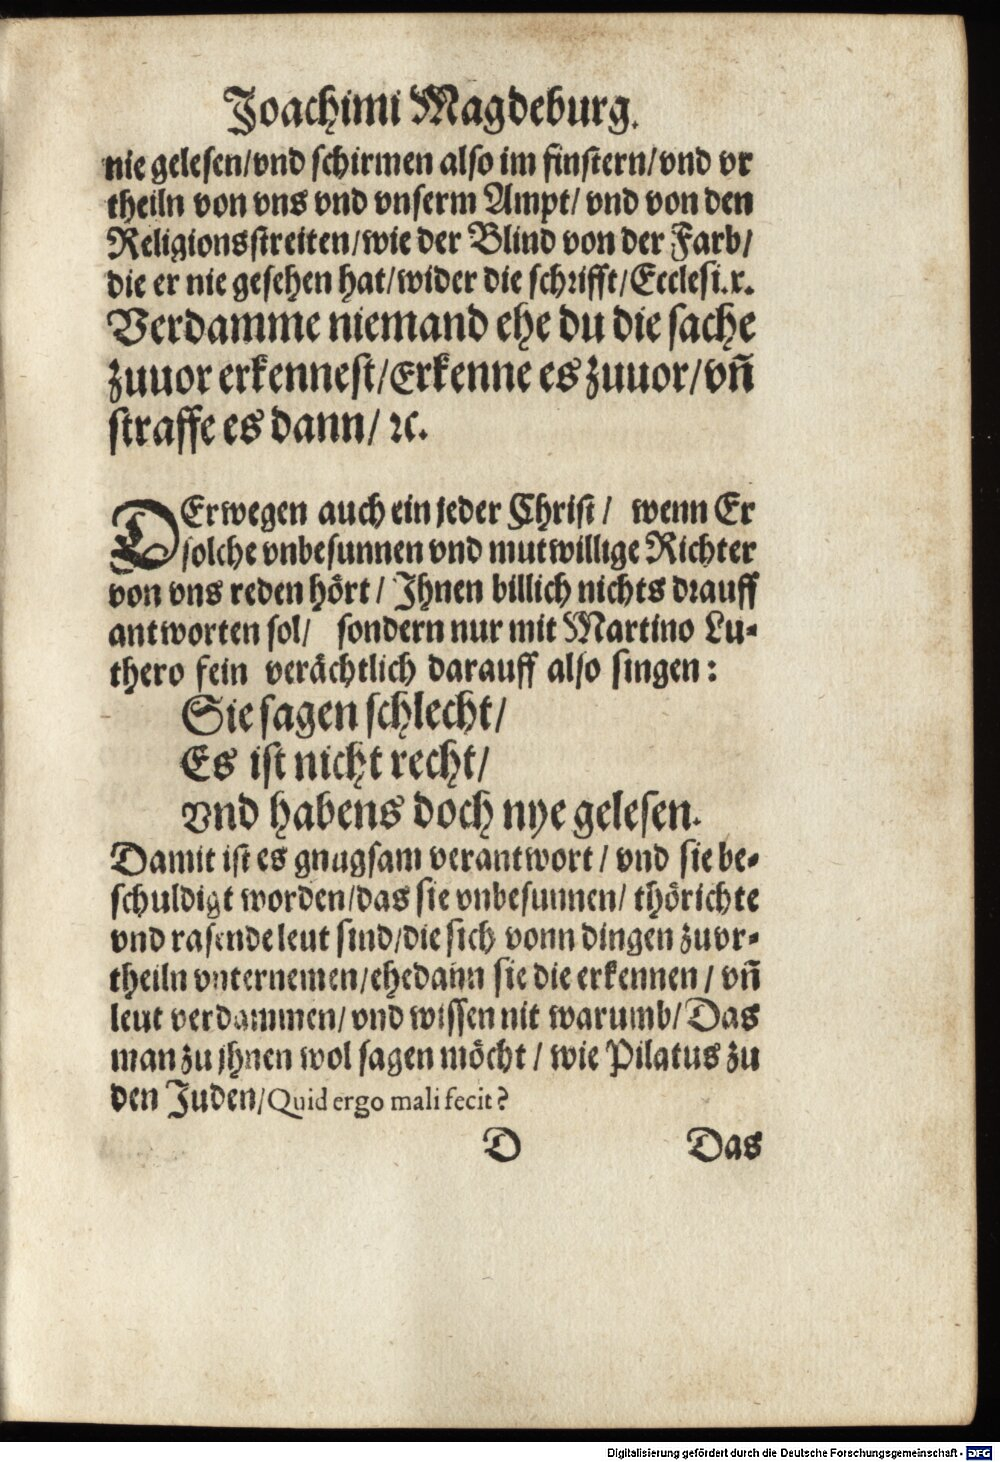 Joachimi Magdeburg.
nie gelesen/vnd schirmen also im finstern/vnd vr
theiln von vns vnd vnserm Ampt/ vnd von den
Religionsstreiten/wie der Blind von der Farb/
die er nie gesehen hat/wider die schrifft/Ecclesi.x.
Verdamme niemand ehe du die sache
zuuor erkennest/Erkenne es zuuor/vñ
straffe es dann/ ꝛc.
DErwegen auch ein jeder Christ/ wenn Er
solche vnbesunnen vnd mutwillige Richter
von vns reden hört/ Ihnen billich nichts drauff
antworten sol/ sondern nur mit Martino Lu-
thero fein verächtlich darauff also singen:
Sie sagen schlecht/
Es ist nicht recht/
vnd habens doch nye gelesen.
Damit ist es gnugsam verantwort/ vnd sie be-
schuldigt worden/das sie vnbesunnen/ thörichte
vnd rasende leut sind/die sich vonn dingen zuvr-
theiln vnternemen/ehedann sie die erkennen/ vñ
leut verdammen/ vnd wissen nit warumb/ Das
man zu jhnen wol sagen möcht/ wie Pilatus zu
den Juden/Quid ergo mali fecit?
D Das
Digitalisierung gefördert durch die Deutsche Forschungsgemeinschaft - DFG